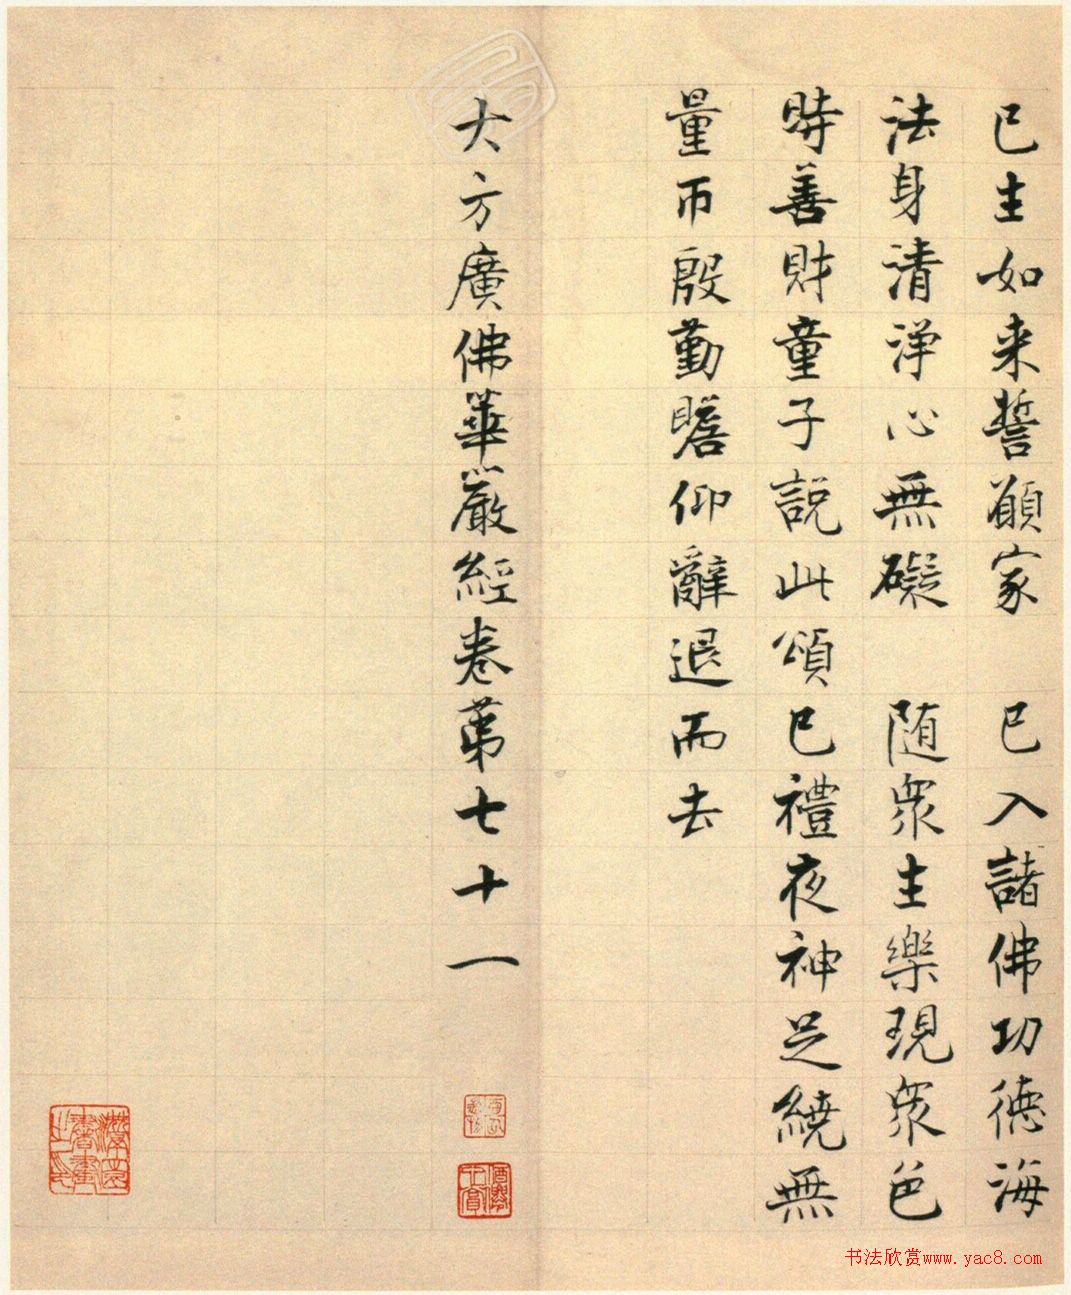 已生如来誓願家　已入諸佛功德海
法身清淨心無礙　随衆生樂現衆色
時善財童子說此頌已禮夜神足繞無
量帀殷勤瞻仰辭退而去
大方廣佛華嚴經卷第七十一
书法欣赏www.yac8.com